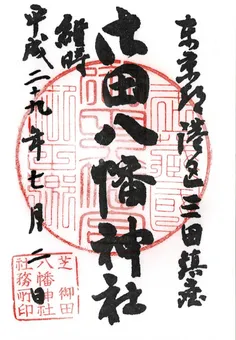 東京都港区三田鎮座
御田八幡神社
維時
平成二十九年七月二日
芝 御田
八幡神社
社務所印